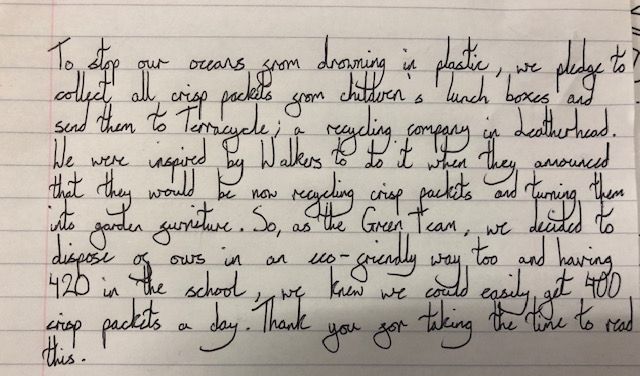 To stop our oceans from drowning in plastic, we pledge to
collect all crisp packets from children's lunch boxes and
send them to Terracycle; a recycling company in Leatherhead.
We were inspired by Walkers to do it when they announced
that they would be now recycling crisp packets and turning them
into garden furniture. So, as the Green Team, we decided to
dispose of ours in an eco-friendly way too and having
420 in the school, we knew we could easily get 400
crisp packets a day. Thank you for taking the time to read
this.